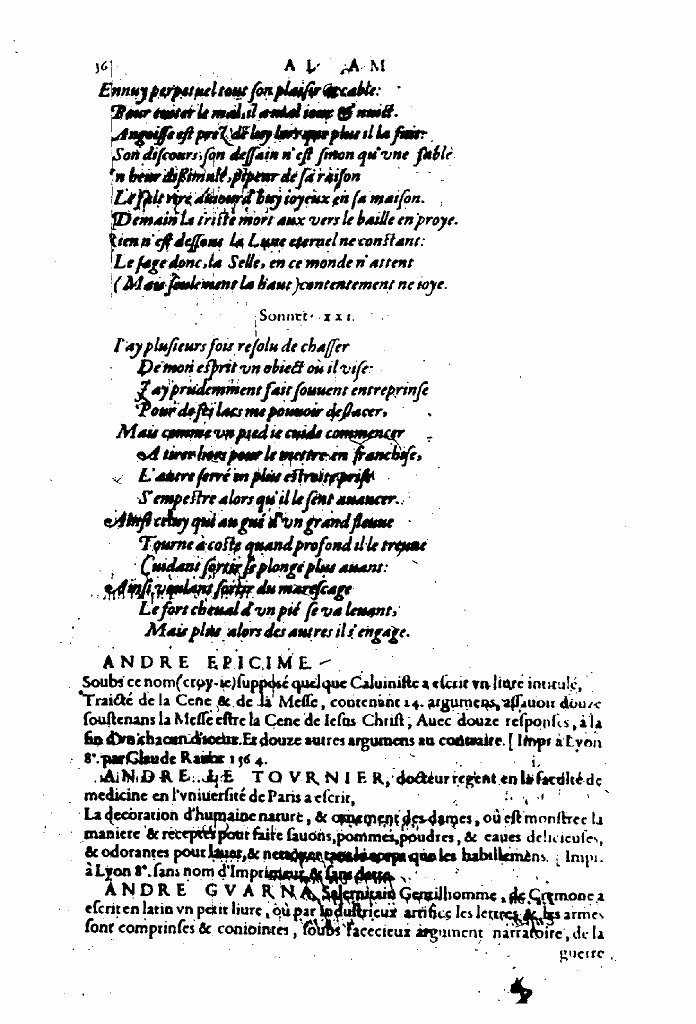 36 AL AM
Ennuy perpetuel tout son plaisir accable:
Pour euiter le mal, il a mal iour & nuict.
Angoisse est pres de luy lors que plus il la fuit:
Son discours, son dessain n'est sinon qu'vne fable
'n heur dissimulé, pipeur de sa raison
Le fait viure auiourd'huy ioyeux en sa maison.
Demain la triste mort aux vers le baille en proye.
Rien n'est dessous la Lune eternel ne constant:
Le sage donc, la Selle, en ce monde n'attent
(Mais seulement la haut) contentement ne ioye.
Sonnet. XXI.
I'ay plusieurs fois resolu de chasser
De mon esprit vn obiect où il vise:
I'ay prudemment fait souuent entreprinse
Pour de ses lacs me pouuoir deslacer,
Mais comme vn pied ie cuide commencer
A tirer hors pour le mettre en franchise,
L'autre serré en plus estroite prise
S'empestre alors qu'il le sent auancer.
Ainsi celuy qui au gué d'vn grand fleuue
Tourne à costé quand profond il le treuue
Cuidant sortir se plonge plus auant:
Ainsi voulant sortir du marescage
Le fort cheual d'vn pié se va leuant,
Mais plus alors des autres il s'engage.
ANDRE EPICIME
Soubs ce nom (croy-ie) supposé quelque Caluiniste a escrit vn liure intitulé,
Traicté de la Cene & de la Messe, contenant 24. argumens, assauoir douze
soustenans la Messe estre la Cene de Iesus Christ; Auec douze responses, à la
fin d'vn chacun d'iceux. Et douze autres argumens au contraire. [Impr. à Lyon
8°. par Claude Rauot 1564.
ANDRE LE TOVRNIER, docteur regent en la faculté de
medicine en l'vniuersité de Paris a escrit,
La decoration d'humaine nature, & ornement des dames, où est monstree la
maniere & receptes pour faire sauons, pommes, poudres, & eaues delicieuses,
& odorantes pour lauer, & nettoyer tant le corps que les habillemens. Impr.
à Lyon 8°. sans nom d'Imprimeur & sans datte.
ANDRE GVARNA, Salernitain Gentilhomme, de Cremone a
escrit en latin vn petit liure, où par industrieux artifice les lettres & les armes
sont comprinses & coniointes, soubs facecieux argument narratoire, de la
guerre